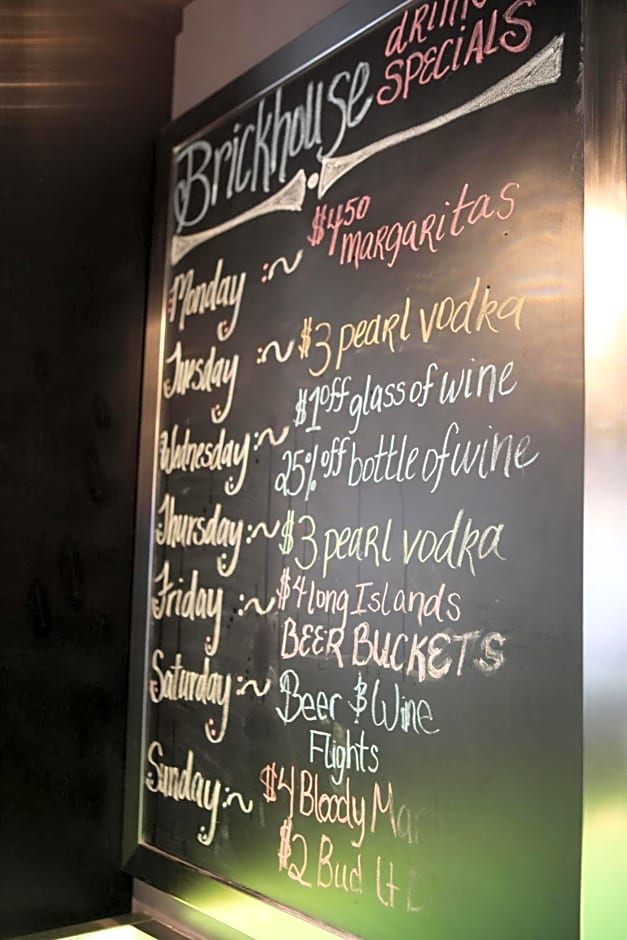 Brickhouse
DRINK
SPECIALS
Monday :~ $4.50
MARGARITAS
Tuesday :~ $3 pearl vodka
$1 off glass of wine
Wednesday :~ 25% off bottle of wine
Thursday :~ $3 pearl vodka
Friday :~ $4 long Islands
BEER BUCKETS
Saturday :~ Beer & Wine
Flights
Sunday :~ $4 Bloody Mar
$2 Bud Lt